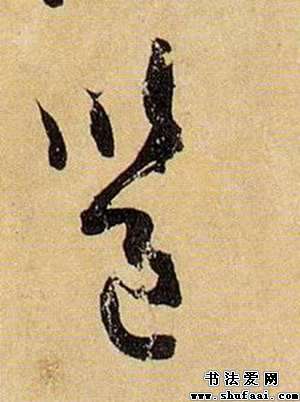 邕
书法爱网
www.shufaai.com